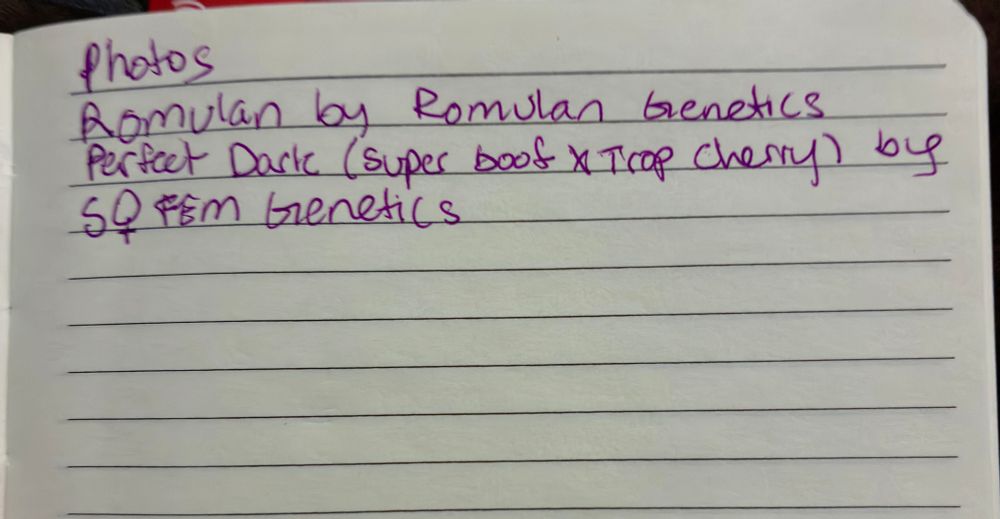 Photos
Romulan by Romulan Genetics
Perfect Dark (Super boof X Trop Cherry) by
SQ FEM Genetics